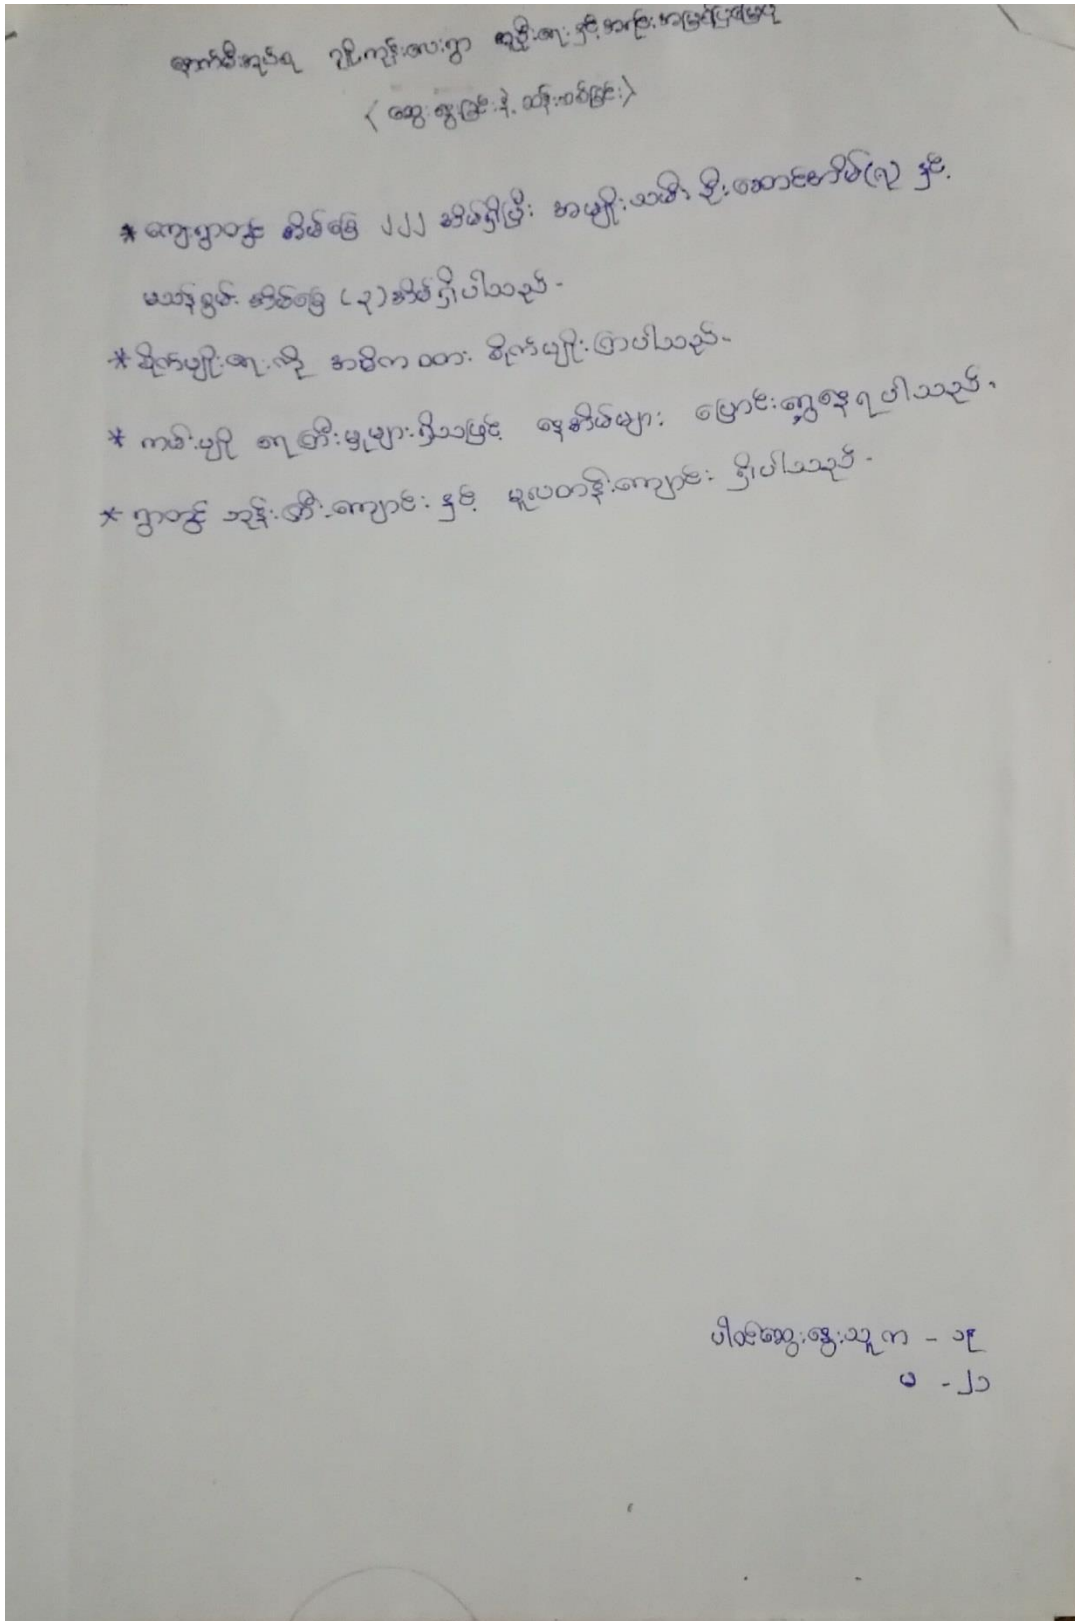 ကျွန်းလေးရွာ နှင့်
(ဆွေးနွေးခြင်းနဲ့ ဆန်းစစ်ခြင်း)
* ကျေးရွာတွင် အိမ်ခြေ ၂၂၂ အိမ်ရှိပြီး အမျိုးသမီး ဦးဆောင်အိမ်(၇) နှင့်
မသန်စွမ်း အိမ်ခြေ (၃)အိမ်ရှိပါသည်-
* စိုက်ပျိုးရေးကို အဓိကထား စိုက်ပျိုးကြပါသည်-
* ကမ်းပျို ရေကြီးမှုများရှိသဖြင့် နေအိမ်များ ပြောင်းရွှေ့နေရပါသည်-
* ရွာတွင် ဘုန်းကြီးကျောင်း နှင့် မူလတန်းကျောင်း ရှိပါသည်-
ပါဝင်ဆွေးနွေးသူ က - ၁၃
မ - ၂၁